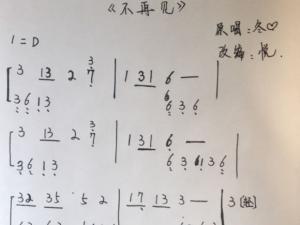 《不再见》
原唱：冬♡
改编：悦.
1=D
3 13 2 3 7 | 1 31 6 —
36 13 6 6 3 6
3 13 2 3 | 1 31 6 —
36 13 6 3 6 13 6
32 35 5 2 | 17 13 3 — | 3